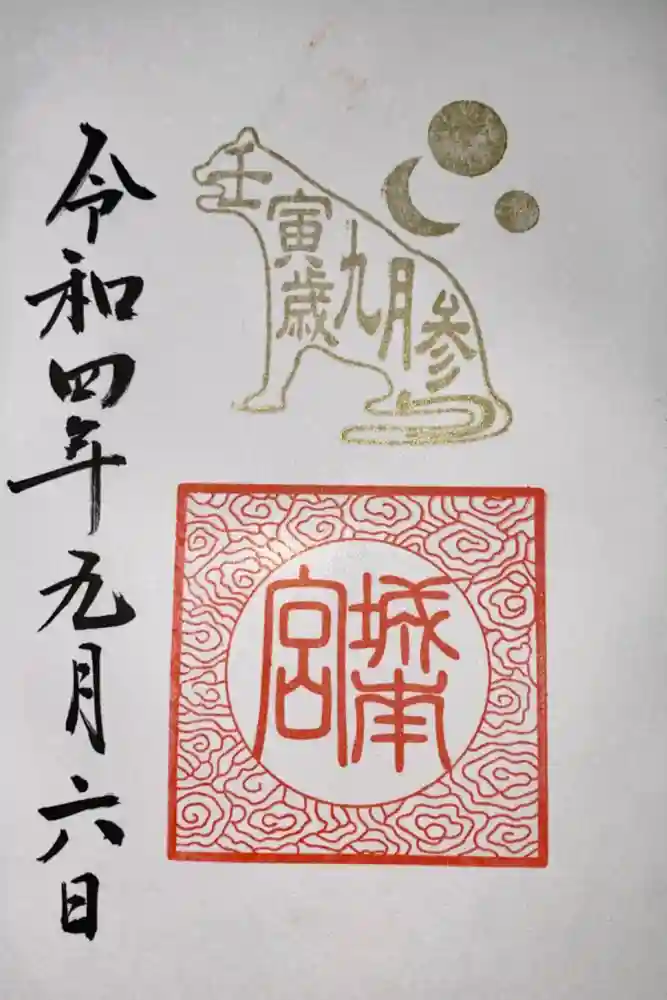 壬寅歳九月参
城南宮
令和四年九月六日